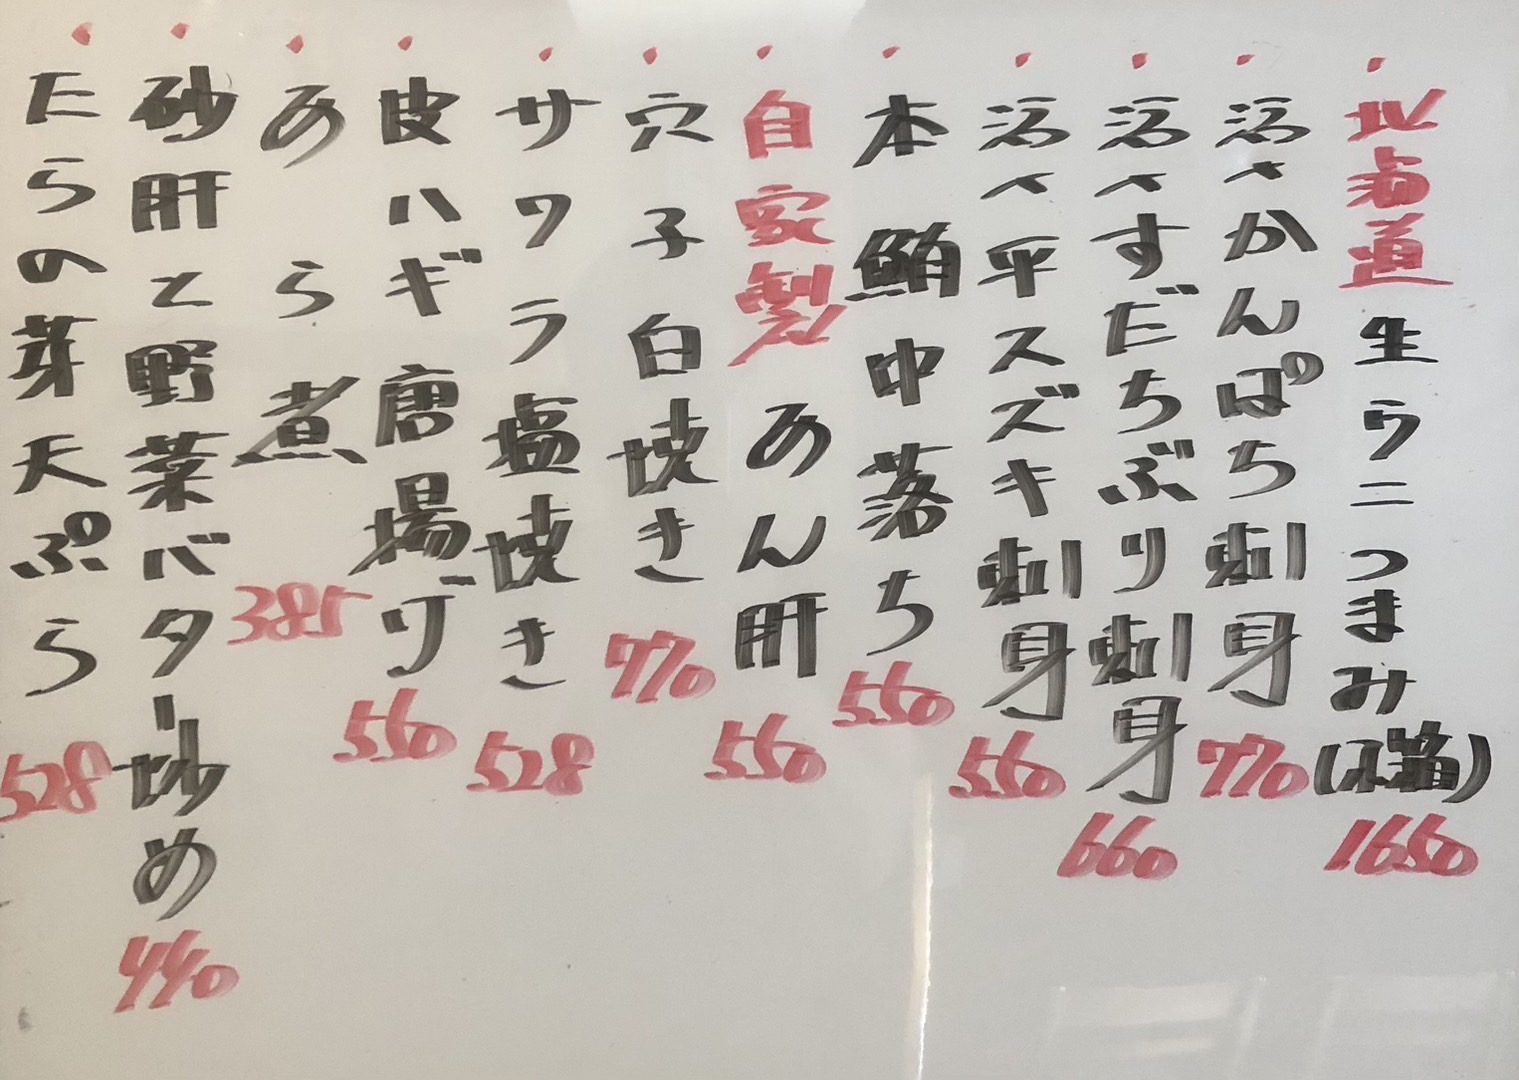 ・北海道生ウニつまみ(木箱)1650
・活〆かんぱち刺身770
・活〆すだちぶり刺身660
・活〆平スズキ刺身550
・本鮪中落ち550
・自家製あん肝550
・穴子白焼き770
・サワラ塩焼き528
・皮ハギ唐揚げ560
・あら煮385
・砂肝と野菜バター炒め440
・たらの芽天ぷら528